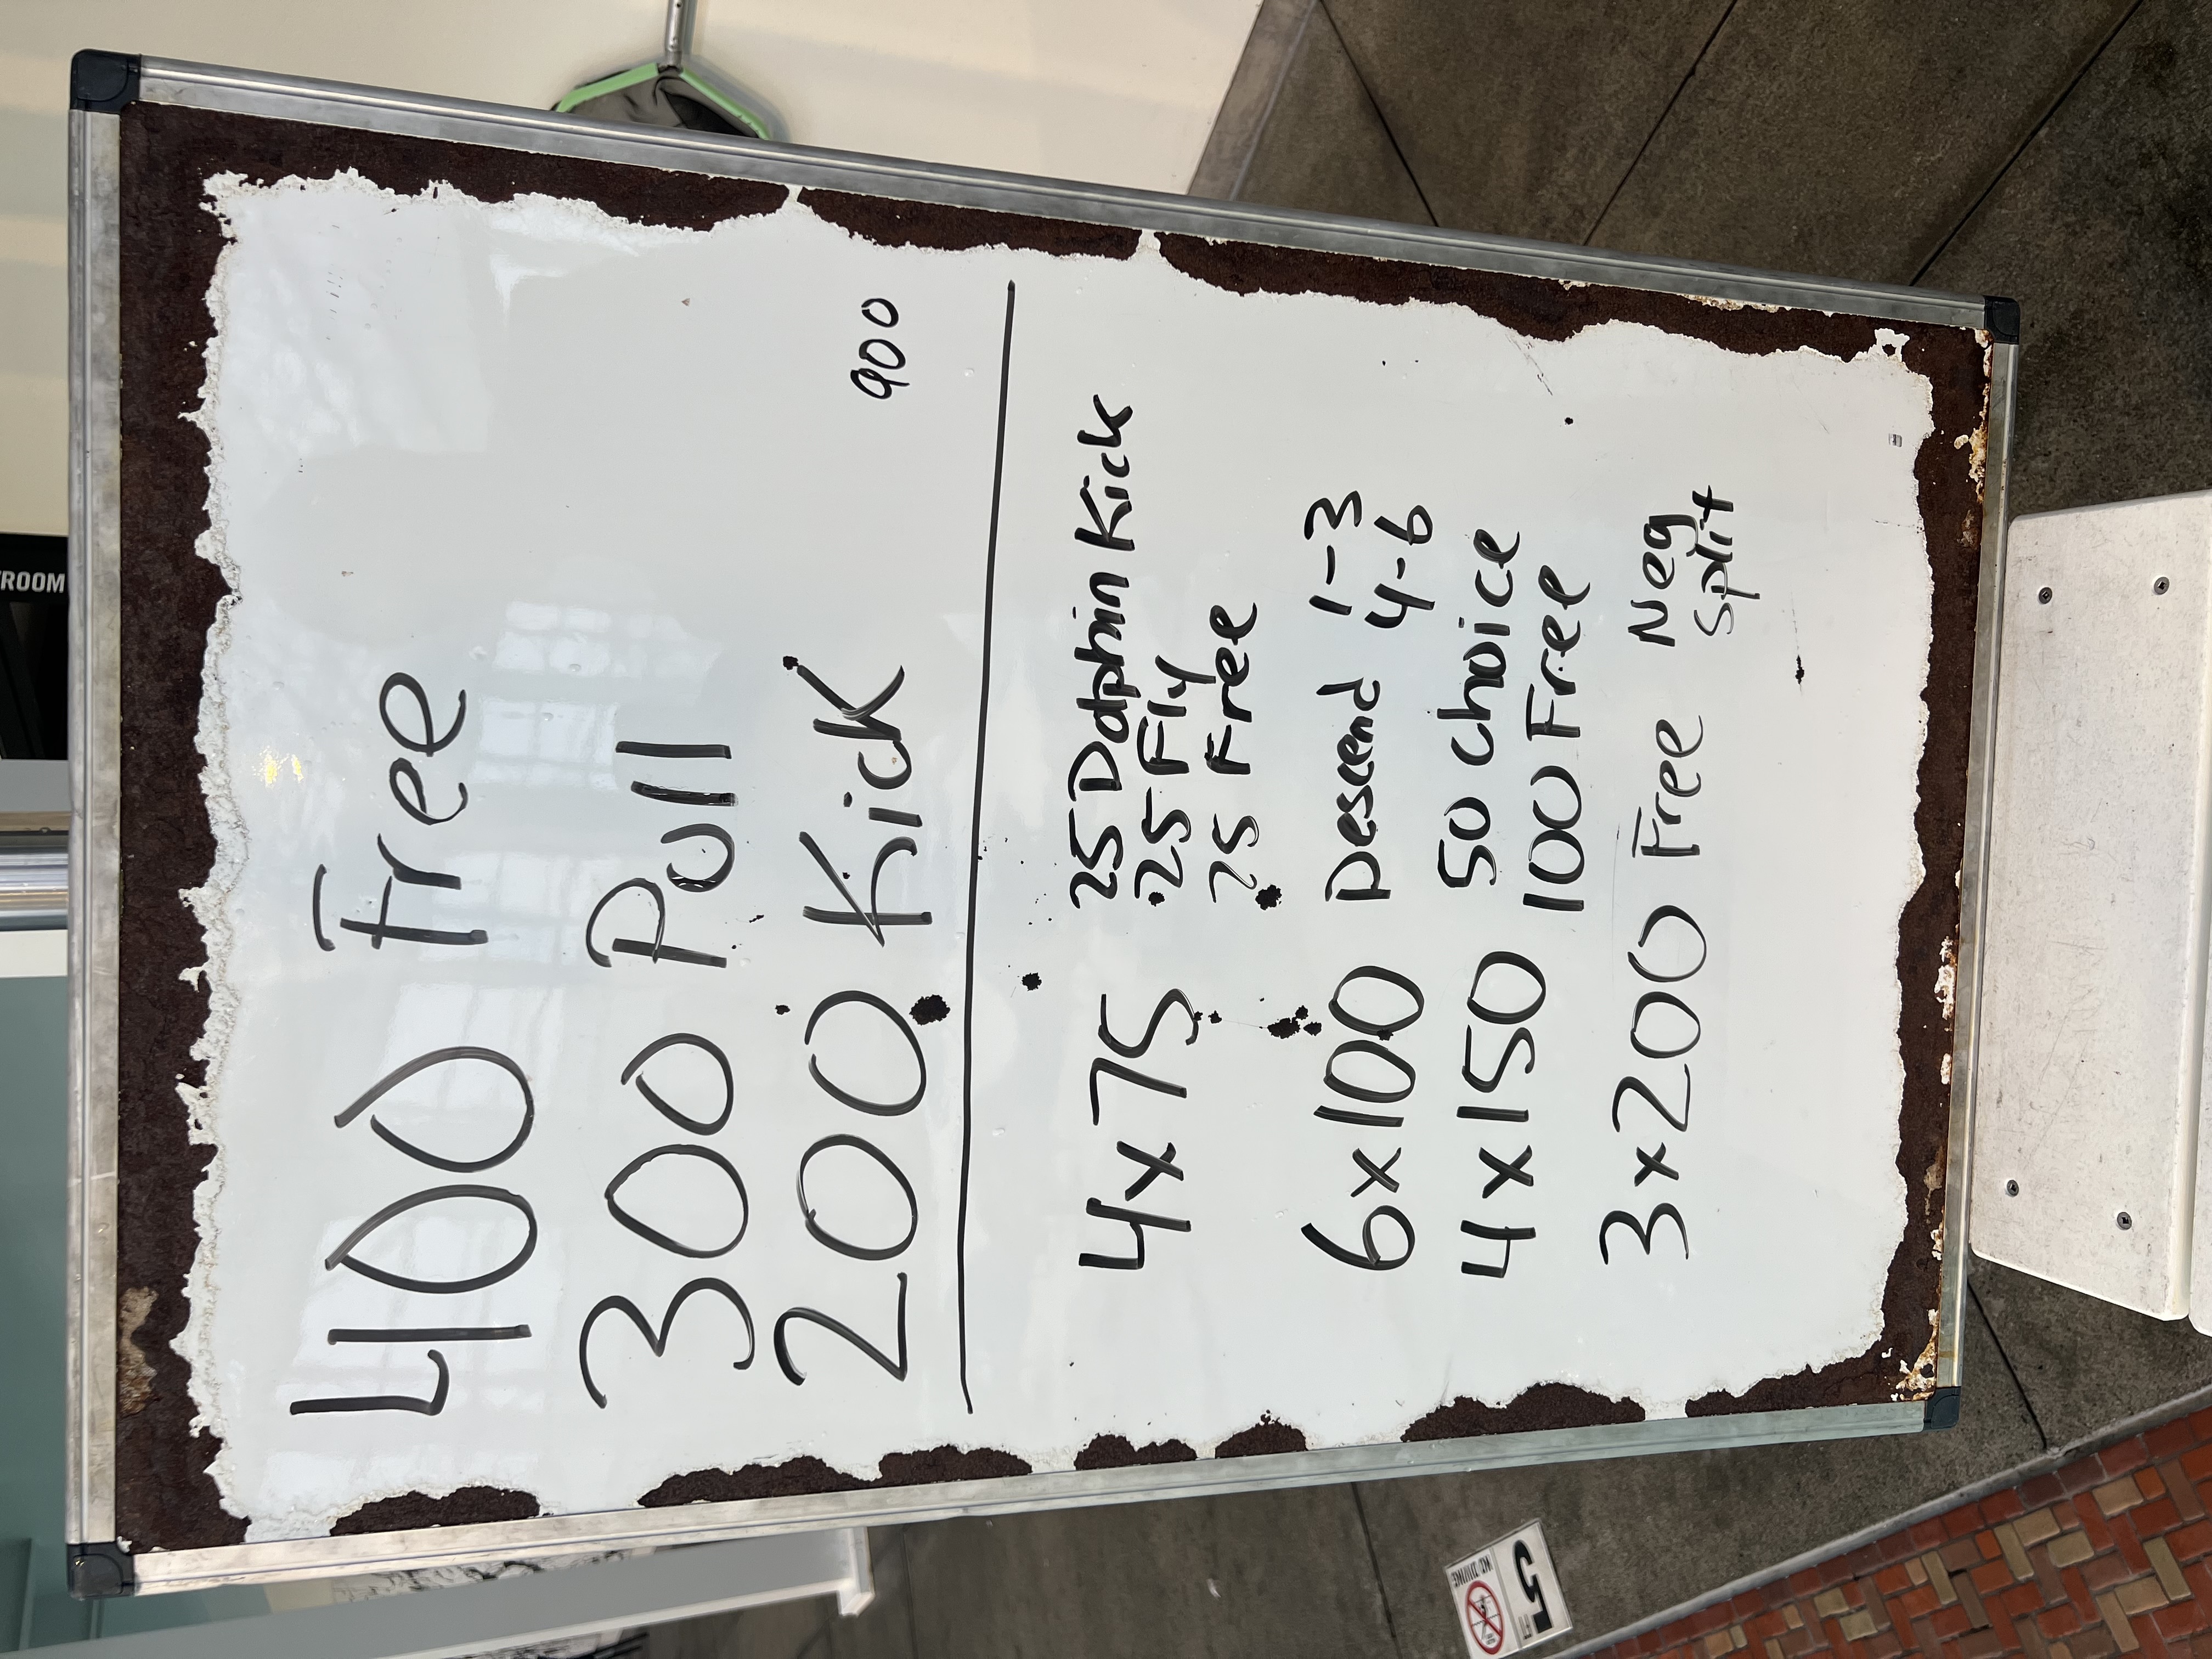 400 Free
300 Pull
200 Kick
900
4x75 25 Dolphin Kick
25 Fly
25 Free
6x100 Descend 1-3
4-6
4x150 50 choice
100 Free
3x200 Free Neg
split
ROOM
5 FT
NO DIVING